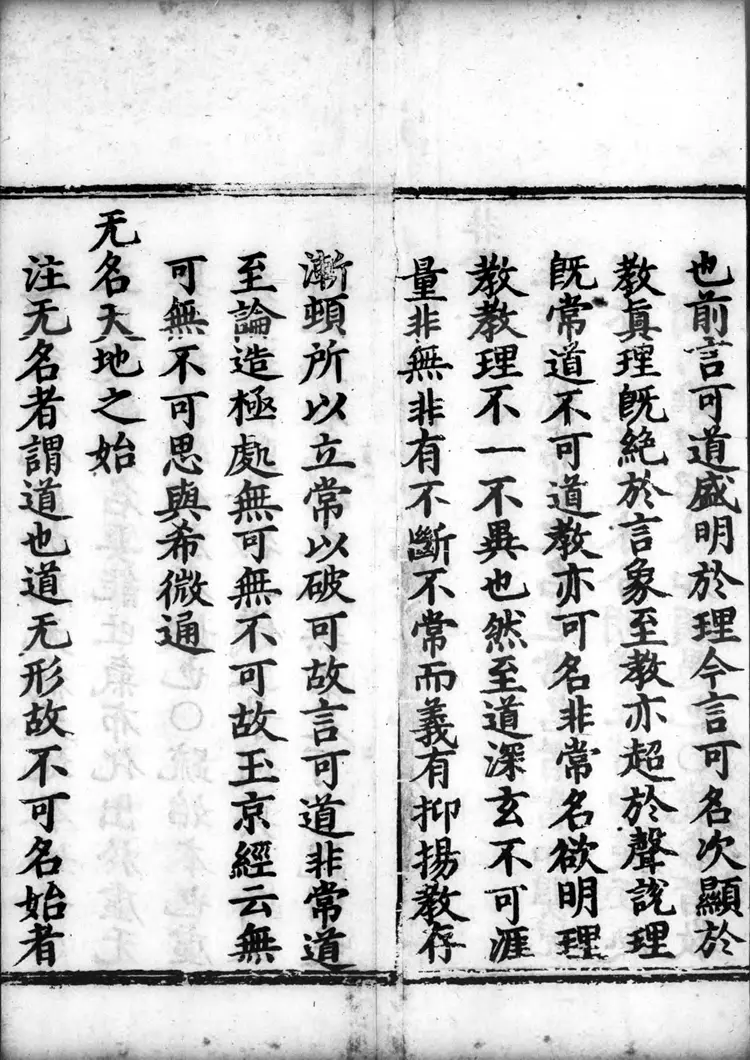 也前言可道盛明於理今言可名次顯於
教眞理旣絶於言象至教亦超於聲說理
旣常道不可道教亦可名非常名欲明理
教教理不一不異也然至道深玄不可涯
量非無非有不斷不常而義有抑揚教存
漸頓所以立常以破可故言可道非常道
至論造極處無可無不可故玉京經云無
可無不可思與希微通
无名天地之始
注无名者謂道也道无形故不可名始者